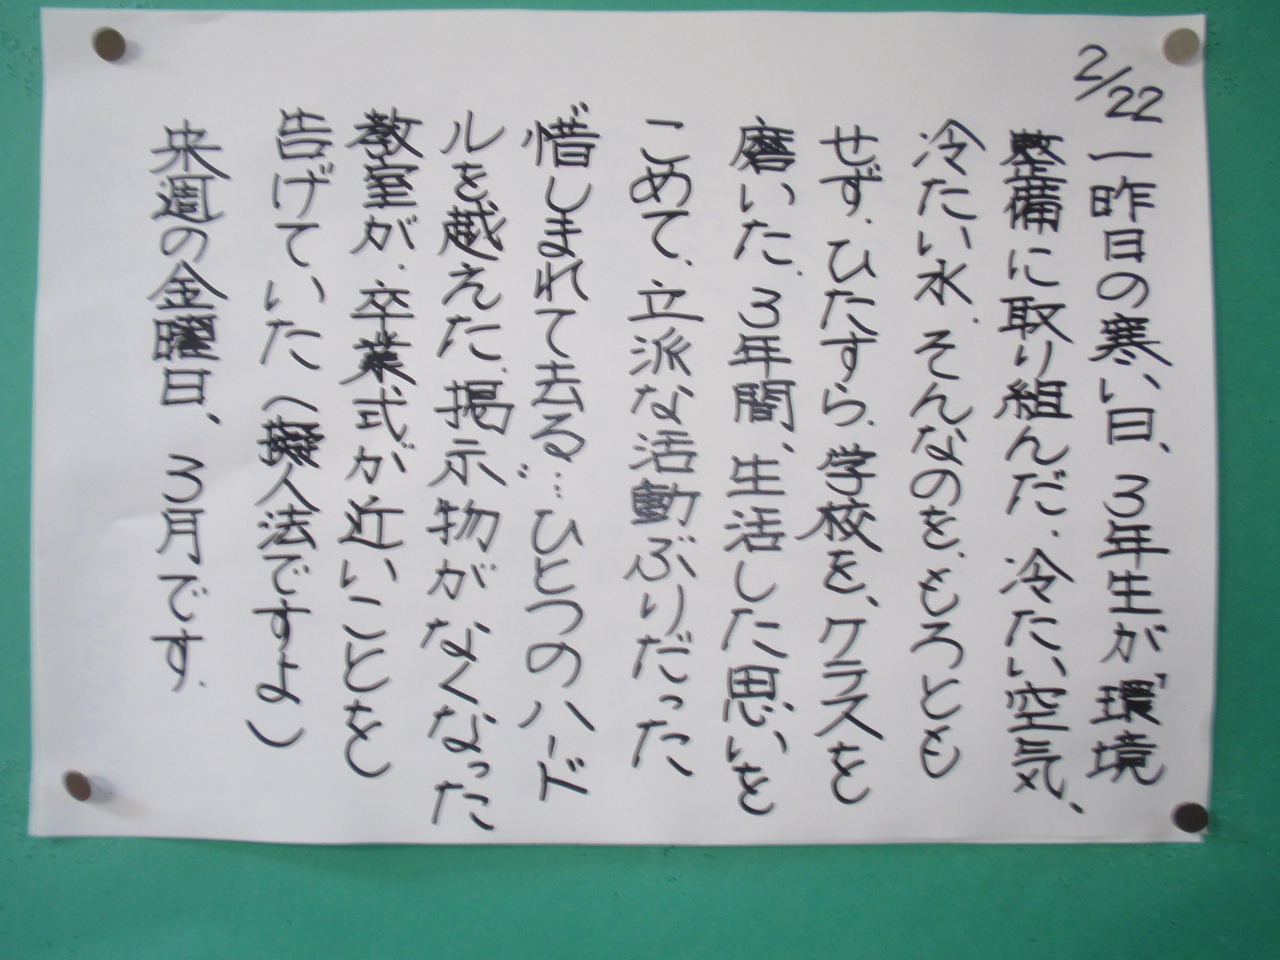 2/22
一昨日の寒い日、3年生が環境
整備に取り組んだ.冷たい空気、
冷たい水.そんなのを.もろとも
せず.ひたすら.学校を、クラスを
磨いた.3年間、生活した思いを
こめて、立派な活動ぶりだった
惜しまれて去る…ひとつのハード
ルを越えた.掲示物がなくなった
教室が.卒業式が近いことを
告げていた(擬人法ですよ)
来週の金曜日、3月です.